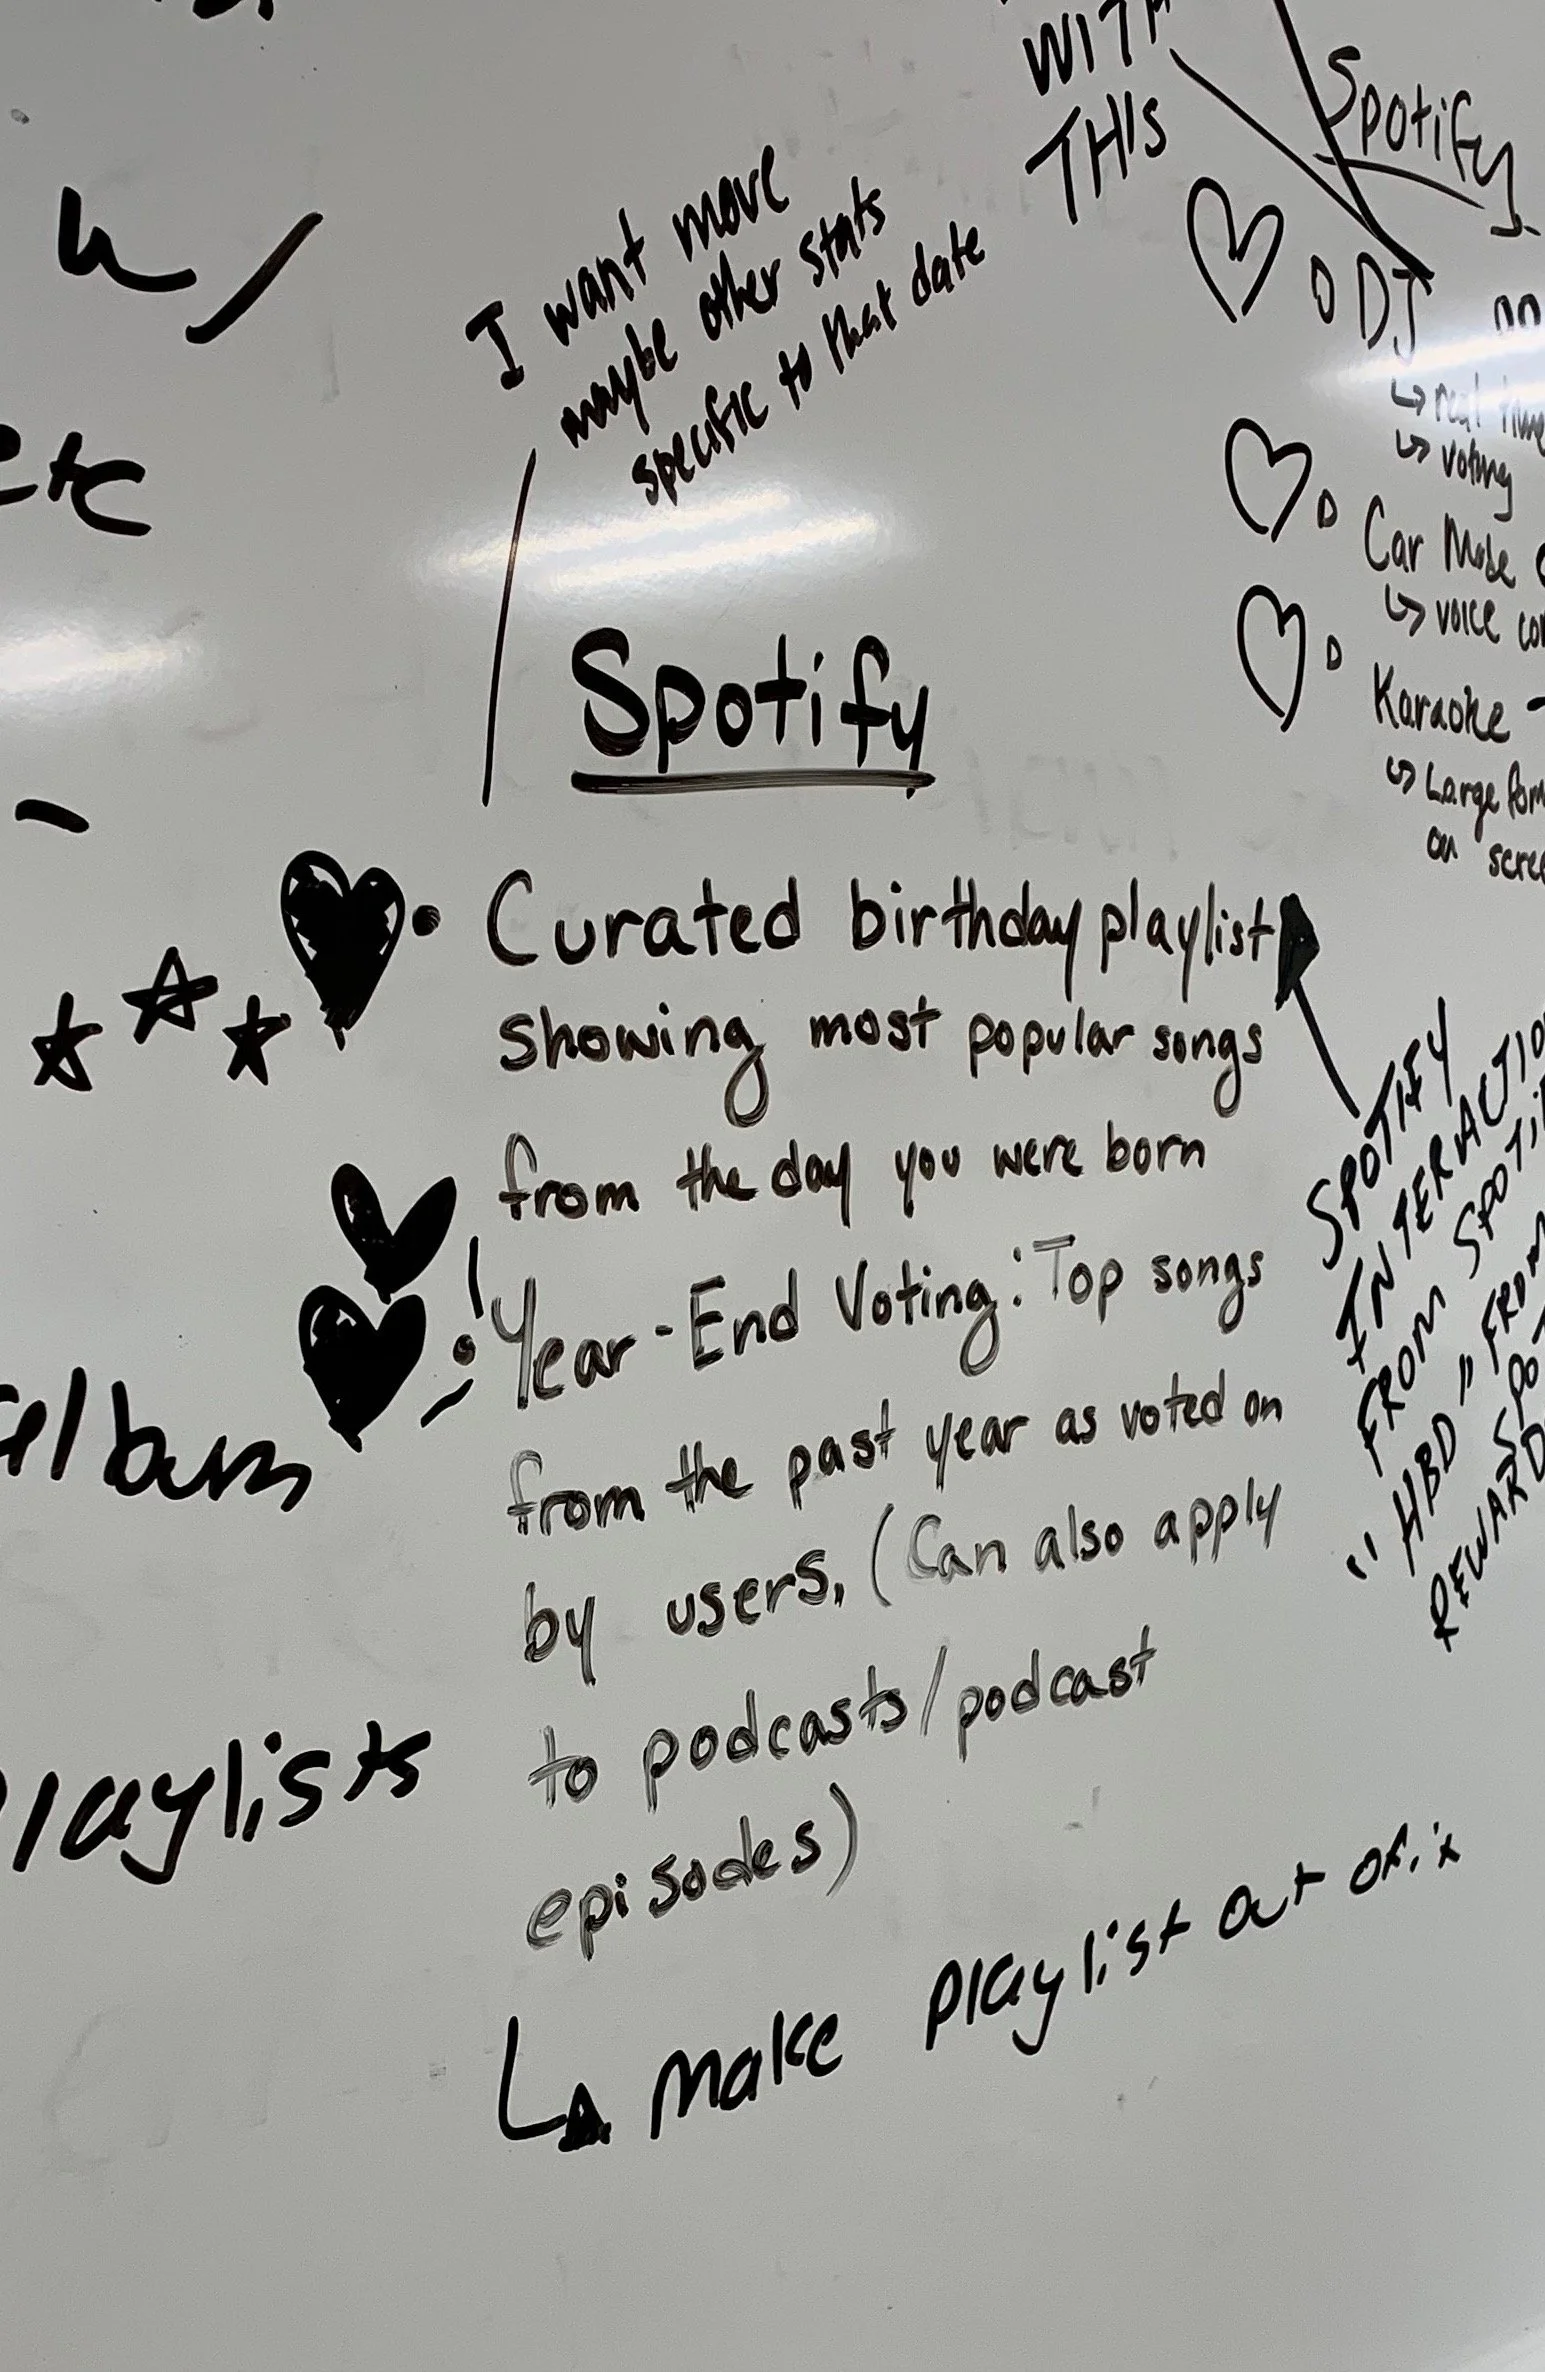 w/
etc
album
Playlists
I want more
maybe other stats
specific to that date
Spotify
• Curated birthday playlist
showing most popular songs
from the day you were born
• Year-End Voting: Top songs
from the past year as voted on
by users. (Can also apply
to podcasts/podcast
episodes)
↳ make playlist out of it
WITH
THIS
Spotify
DJ
↳ real time
↳ voting
Car Mode
↳ voice
Karaoke -
↳ Large
on
SPOTIFY
INTERACTION
FROM
"HBD" FROM
REWARD